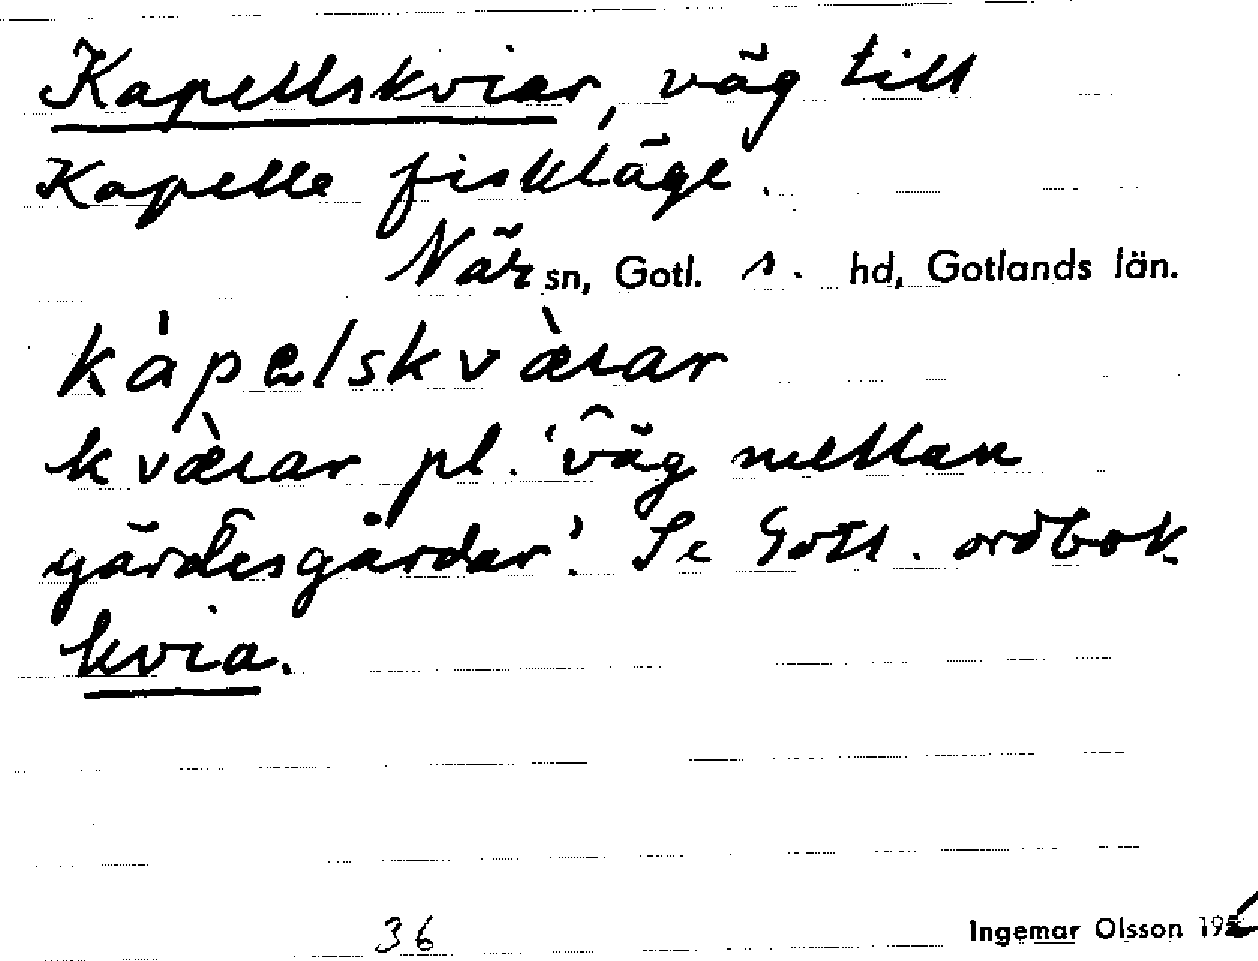 Kapellskviar, väg till
Kapelle fiskläge.
När sn, Gotl. s. hd, Gotlands län.
kápelskvæ̀rar
kvæ̀rar pl. 'väg mellan
gärdesgårdar'. Se Gotl. ordbok
kvia.
36
Ingemar Olsson